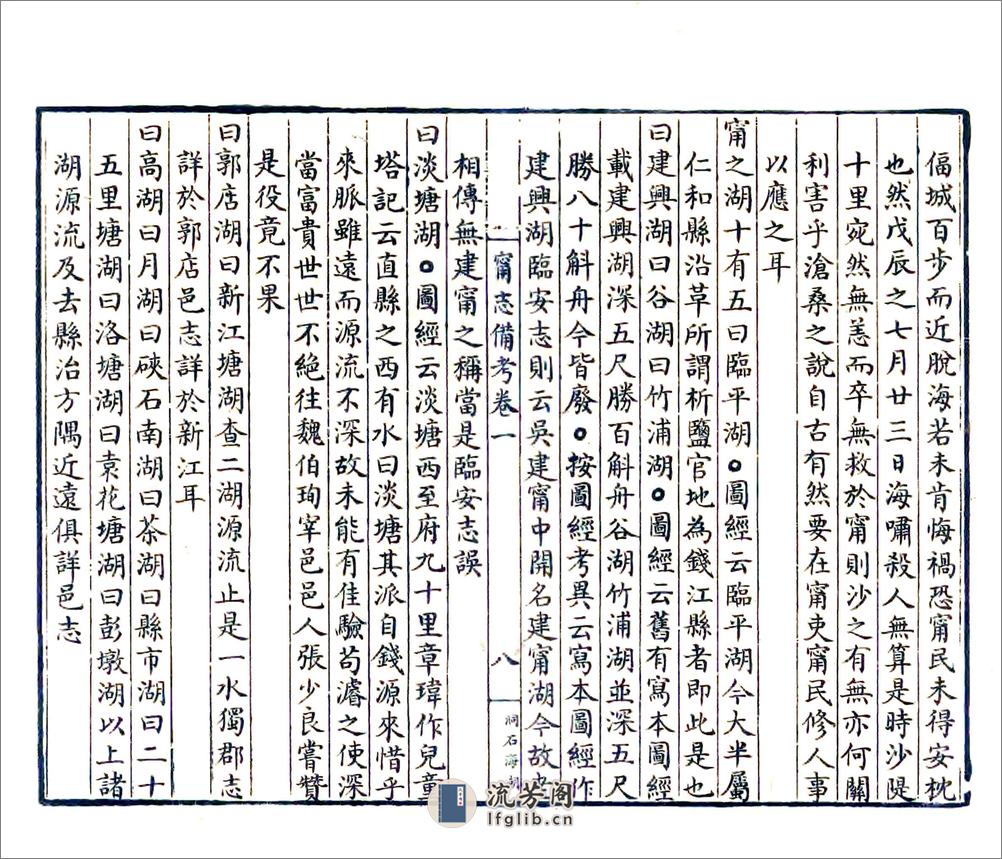 偪城百步而近脫海若未肯悔禍恐甯民未得安枕
也然戊辰之七月廿三日海嘯殺人無算是時沙隄
十里宛然無恙而卒無救於甯則沙之有無亦何關
利害乎滄桑之說自古有然要在甯吏甯民修人事
以應之耳
甯之湖十有五曰臨平湖圖經云臨平湖今大半屬
仁和縣沿革所謂析鹽官地為錢江縣者即此是也
曰建興湖曰谷湖曰竹浦湖圖經云舊有寫本圖經
載建興湖深五尺勝百斛舟谷湖竹浦湖並深五尺
勝八十斛舟今皆廢按圖經考異云寫本圖經作
建興湖臨安志則云吳建甯中開名建甯湖今故老
甯志備考卷一
八
洞石海
相傳無建甯之稱當是臨安志誤
曰淡塘湖圖經云淡塘西至府九十里章瑋作兒童
塔記云直縣之西有水曰淡塘其派自錢源來惜乎
來脈雖遠而源流不深故未能有佳驗苟濬之使深
當富貴世世不絕往魏伯珣宰邑邑人張少良嘗贊
是役竟不果
曰郭店湖曰新江塘湖查二湖源流止是一水獨郡志
詳於郭店邑志詳於新江耳
曰高湖曰月湖曰硤石南湖曰茶湖曰縣市湖曰二十
五里塘湖曰洛塘湖曰袁花塘湖曰彭墩湖以上諸
湖源流及去縣治方隅近遠俱詳邑志
流芳阁
lfglib.cn